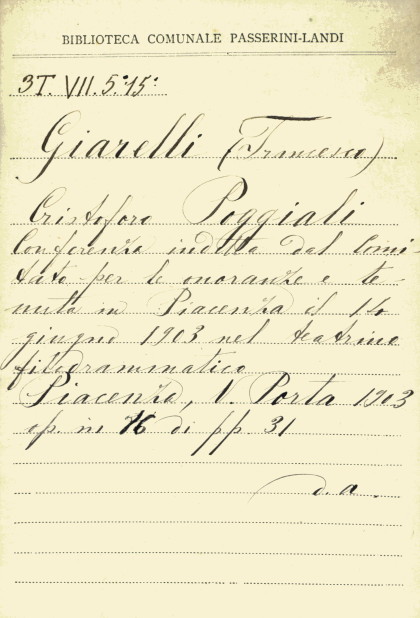 BIBLIOTECA COMUNALE PASSERINI-LANDI
3T. VII. 5.° 15.°
Giarelli (Francesco)
Cristoforo Poggiali
Conferenza indetta dal Comi-
tato per le onoranze e te-
nuta in Piacenza il 14
giugno 1903 nel teatrino
filodrammatico
Piacenza, V. Porta 1903
op. in 16 di pp. 31
d. a.